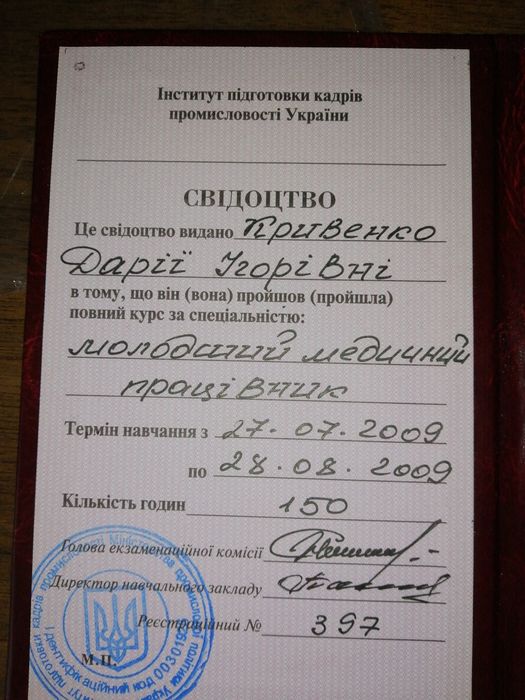 Інститут підготовки кадрів
промисловості України
СВІДОЦТВО
Це свідоцтво видано Кривенко
Дарії Ігорівні
в тому, що він (вона) пройшов (пройшла)
повний курс за спеціальністю:
молодший медичний
працівник
Термін навчання з 27.07.2009
по 28.08.2009
Кількість годин 150
Голова екзаменаційної комісії
Директор навчального закладу
Реєстраційний № 397
М.П.